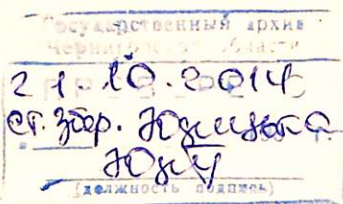 Государственный архив
Черниговской области
21.10.2014
ст. збер.
(должность подпись)